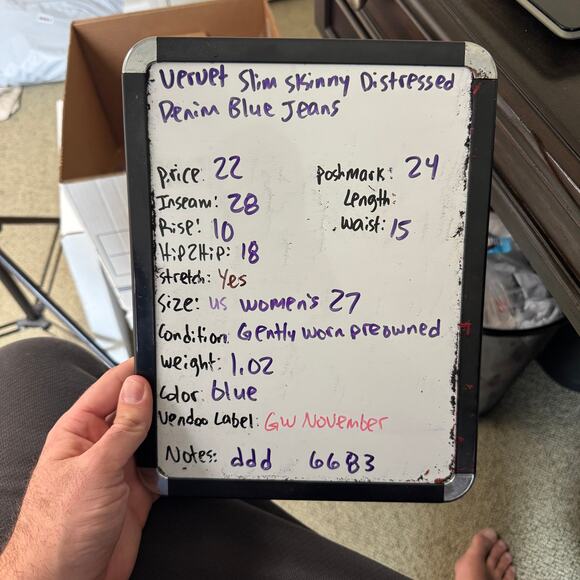 Vervet Slim Skinny Distressed
Denim Blue Jeans
Price: 22 Poshmark: 24
Inseam: 28 Length:
Rise: 10 Waist: 15
Hip2Hip: 18
Stretch: Yes
Size: US Women's 27
Condition: Gently worn preowned
Weight: 1.02
Color: blue
Vendoo Label: GW November
Notes: ddd 6683